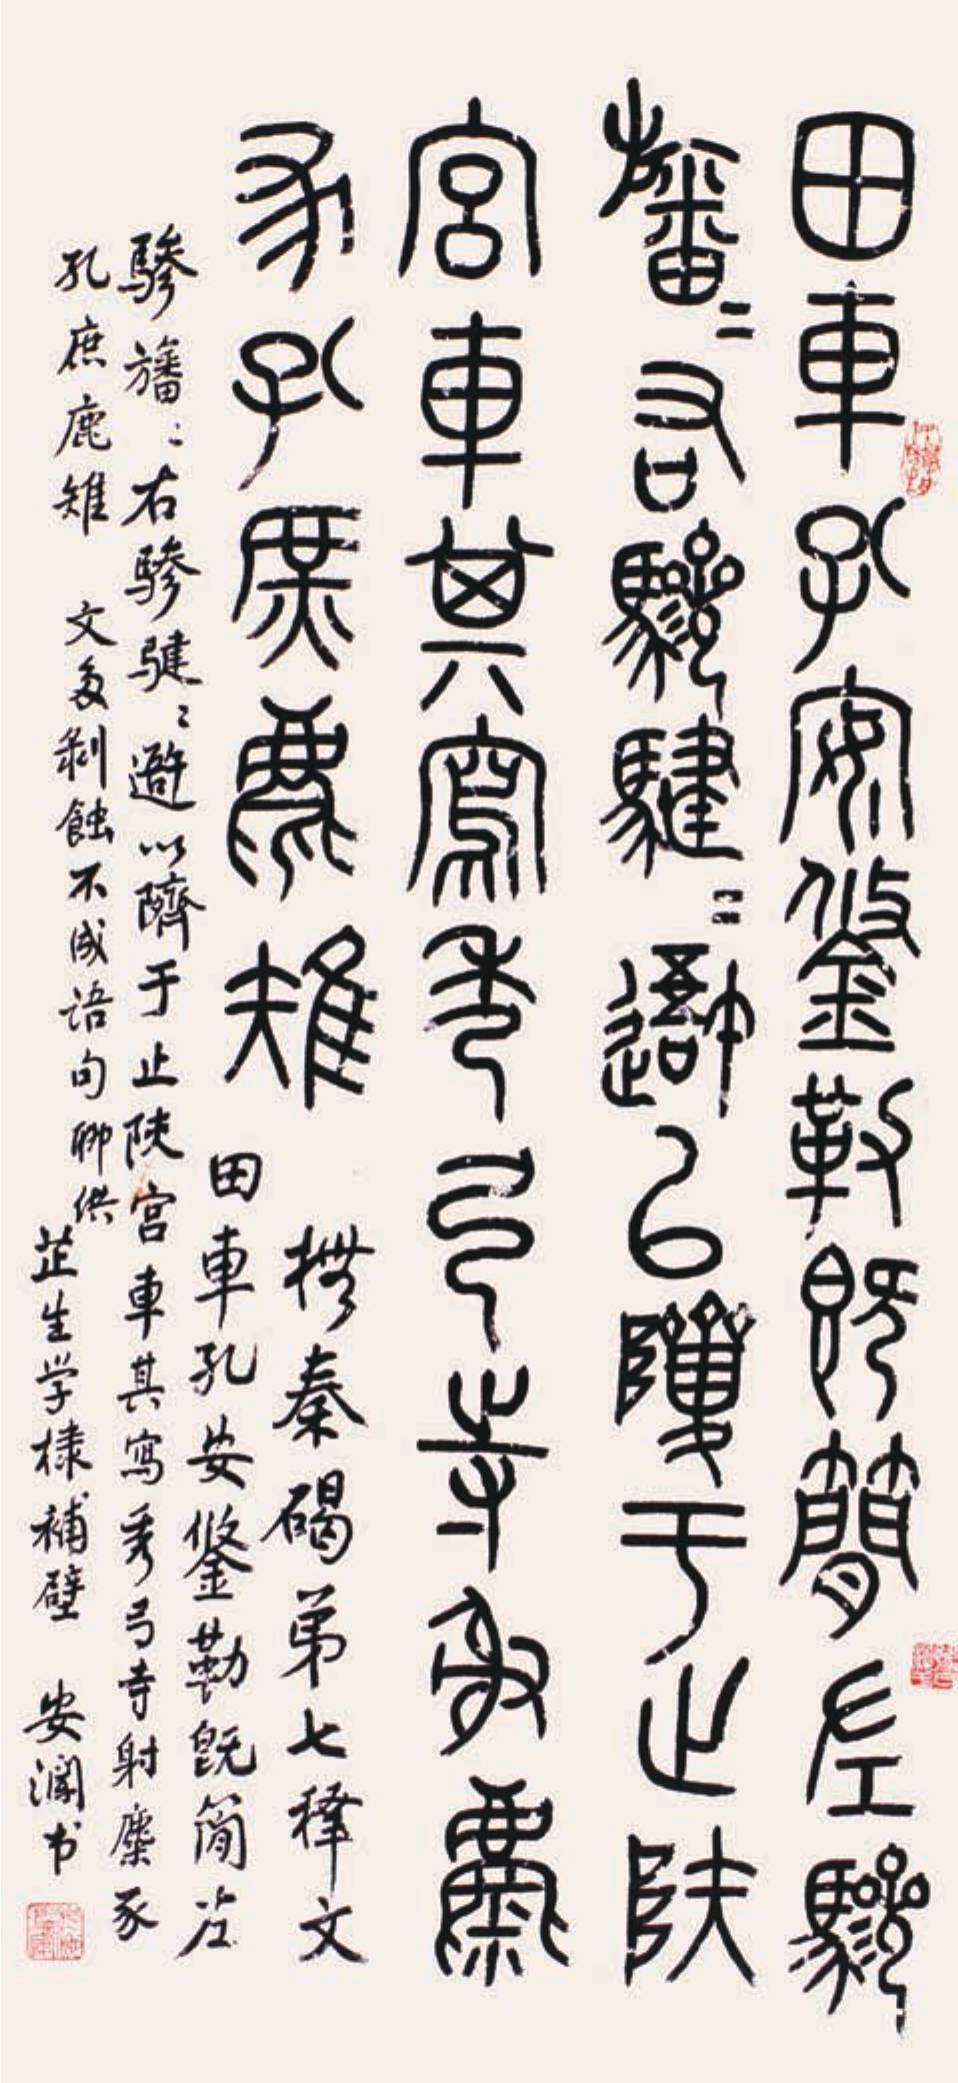 田車孔安鋚勒既簡左驂
旛=右驂騝=遊以隮于止陝
宮車其寫秀弓寺射麋
豕孔庶鹿雉
橅秦碣弟七释文
田車孔安鋚勒既简左
驂旛=右驂騝=遊以隮于止陝宫車其寫秀弓寺射麋豕
孔庶鹿雉 文多剥蝕不成语句聊供
芷生学棣補壁 安瀾书